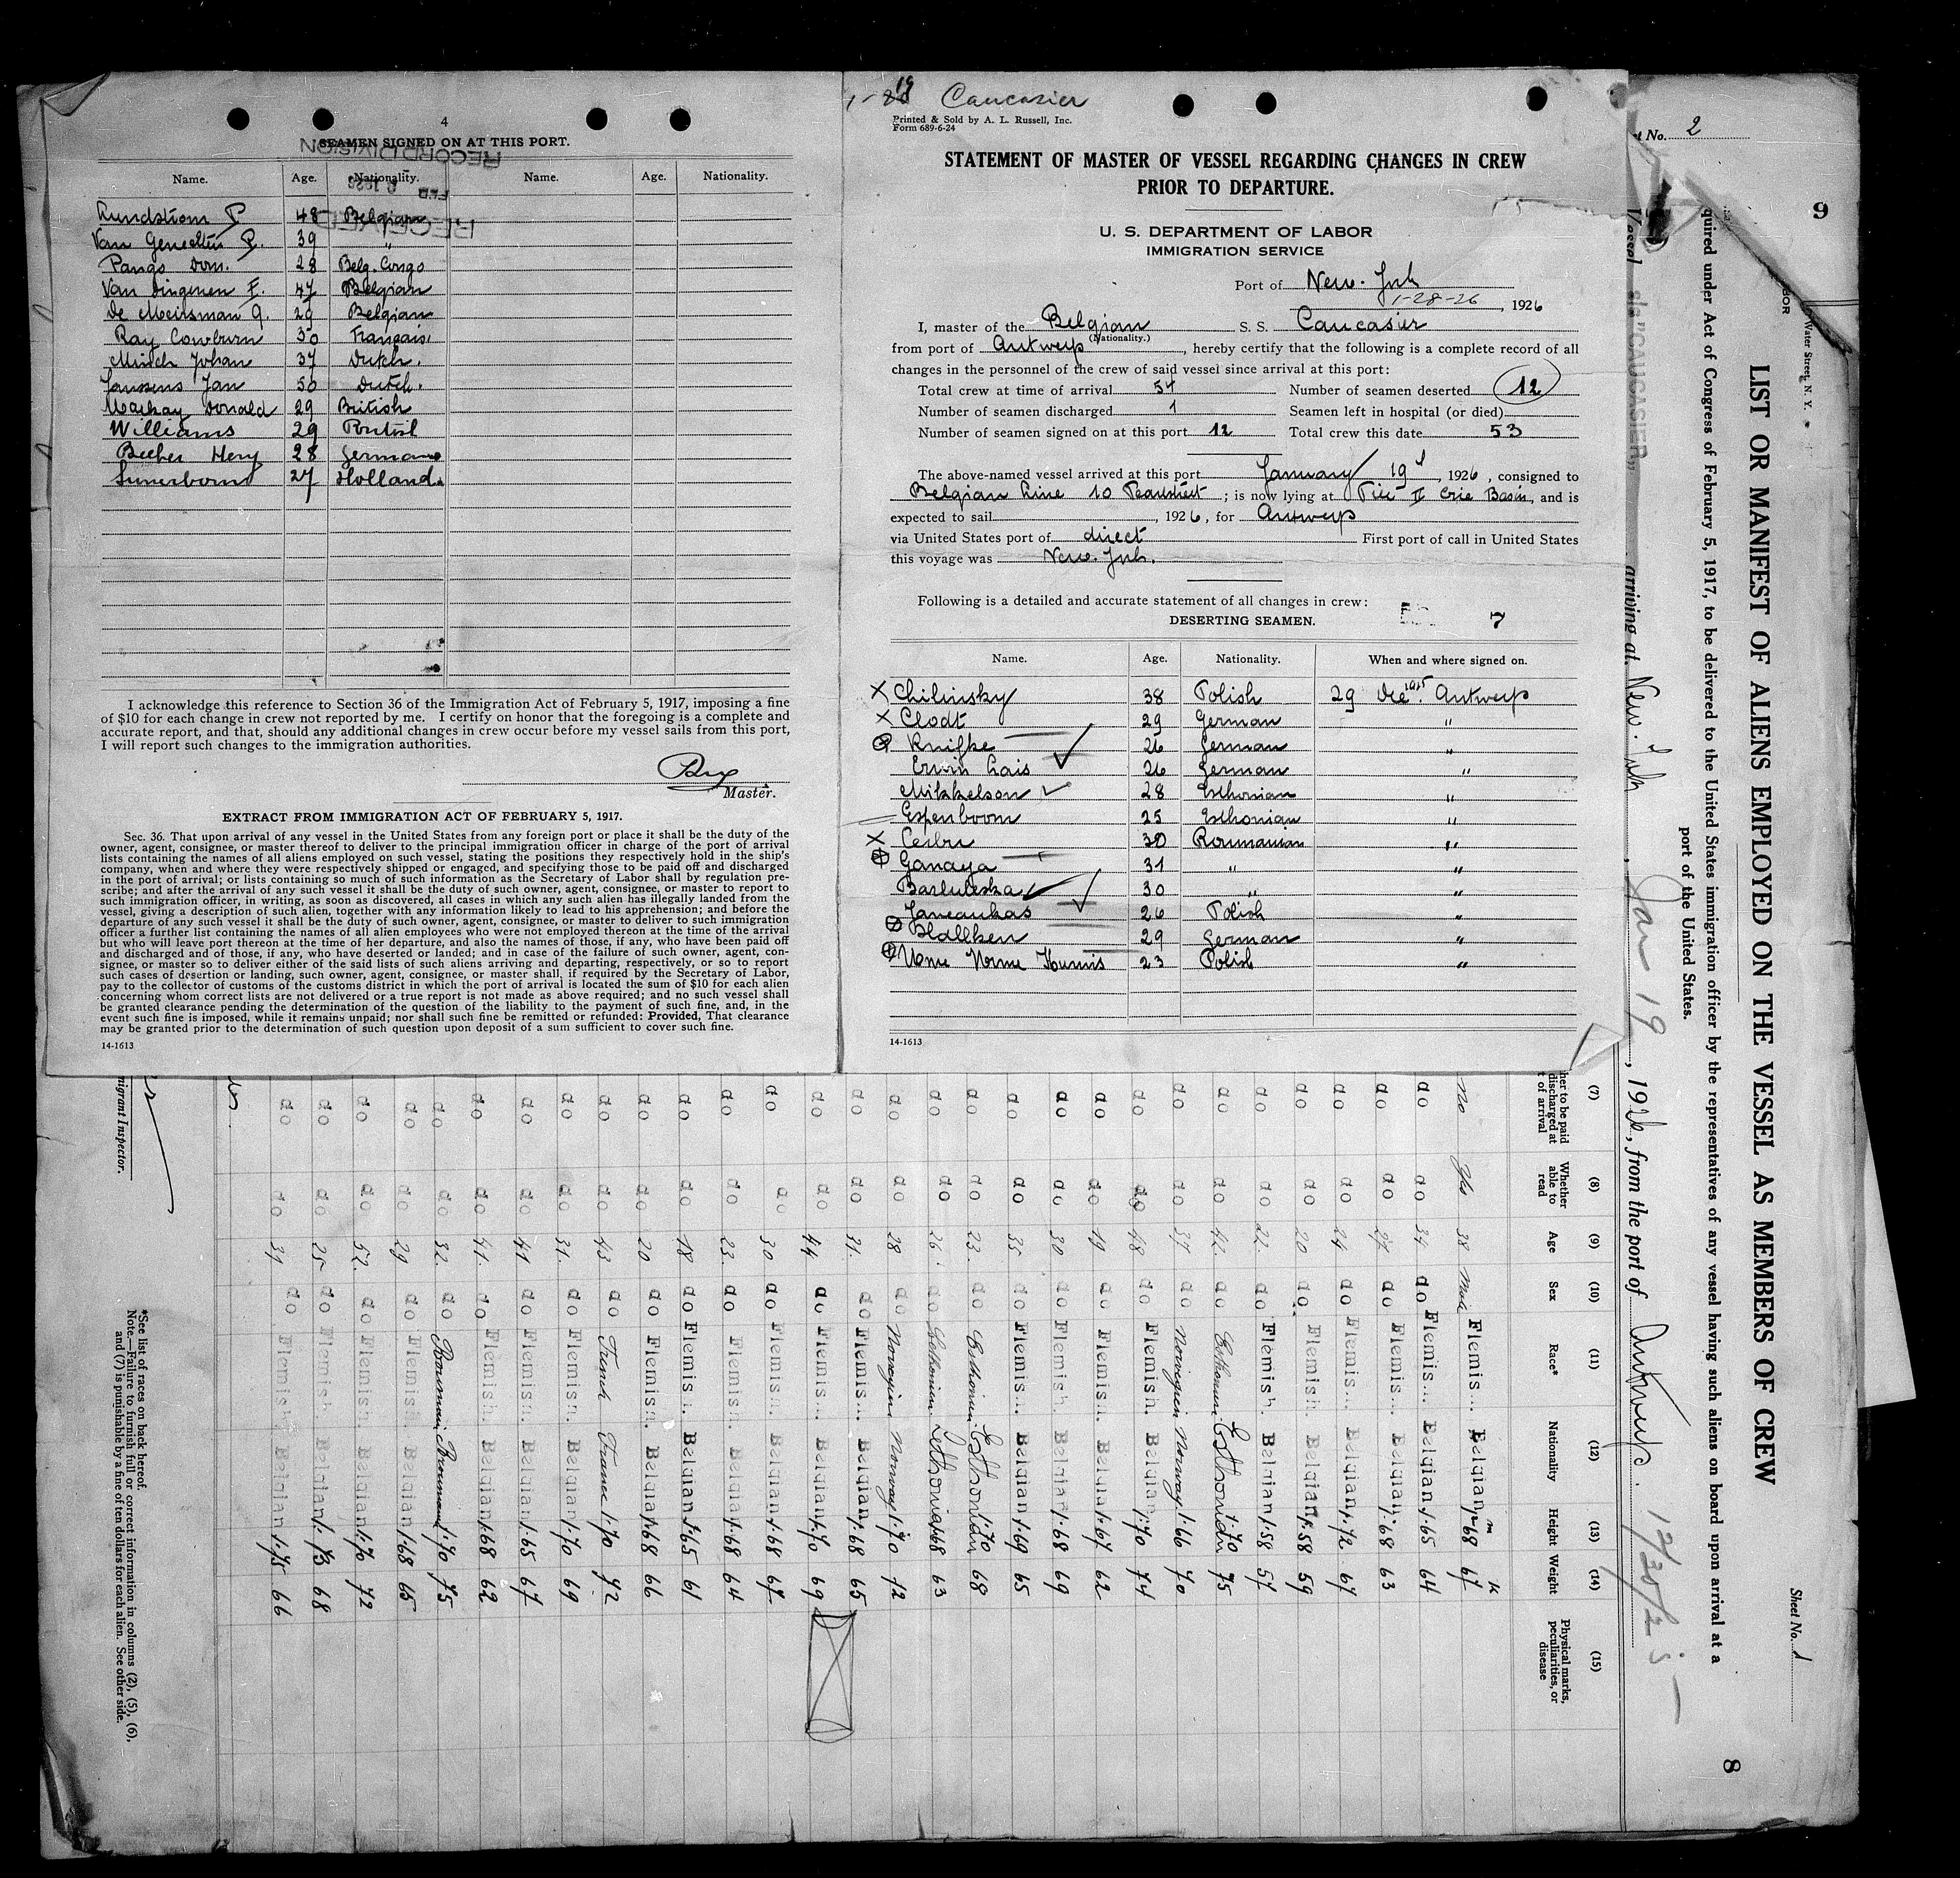 4
SEAMEN SIGNED ON AT THIS PORT.
RECORD DIVISION
FEB
RECEIVED
Name. Age. Nationality. Name. Age. Nationality.
Lundstrom P 48 Belgian
Van Genechten P. 39 "
Pango Dom. 28 Belg. Congo
Van Dingenen F. 47 Belgian
De Meirsman G. 29 Belgian
Ray Cowburn 30 Français
Minch Johan 37 Dutch.
Janssens Jan 50 Dutch.
Mackay Donald 29 British
Williams 29 British
Becher Hery 28 German
27 Holland.
I acknowledge this reference to Section 36 of the Immigration Act of February 5, 1917, imposing a fine
of $10 for each change in crew not reported by me. I certify on honor that the foregoing is a complete and
accurate report, and that, should any additional changes in crew occur before my vessel sails from this port,
I will report such changes to the immigration authorities.
Master.
EXTRACT FROM IMMIGRATION ACT OF FEBRUARY 5, 1917.
Sec. 36. That upon arrival of any vessel in the United States from any foreign port or place it shall be the duty of the
owner, agent, consignee, or master thereof to deliver to the principal immigration officer in charge of the port of arrival
lists containing the names of all aliens employed on such vessel, stating the positions they respectively hold in the ship's
company, when and where they were respectively shipped or engaged, and specifying those to be paid off and discharged
in the port of arrival; or lists containing so much of such information as the Secretary of Labor shall by regulation pre-
scribe; and after the arrival of any such vessel it shall be the duty of such owner, agent, consignee, or master to report to
such immigration officer, in writing, as soon as discovered, all cases in which any such alien has illegally landed from the
vessel, giving a description of such alien, together with any information likely to lead to his apprehension; and before the
departure of any such vessel it shall be the duty of such owner, agent, consignee, or master to deliver to such immigration
officer a further list containing the names of all alien employees who were not employed thereon at the time of the arrival
but who will leave port thereon at the time of her departure, and also the names of those, if any, who have been paid off
and discharged and of those, if any, who have deserted or landed; and in case of the failure of such owner, agent, con-
signee, or master so to deliver either of the said lists of such aliens arriving and departing, respectively, or so to report
such cases of desertion or landing, such owner, agent, consignee, or master shall, if required by the Secretary of Labor,
pay to the collector of customs of the customs district in which the port of arrival is located the sum of $10 for each alien
concerning whom correct lists are not delivered or a true report is not made as above required; and no such vessel shall
be granted clearance pending the determination of the question of the liability to the payment of such fine, and, in the
event such fine is imposed, while it remains unpaid; nor shall such fine be remitted or refunded: Provided, That clearance
may be granted prior to the determination of such question upon deposit of a sum sufficient to cover such fine.
14-1613
Caucasier
Printed & Sold by A. L. Russell, Inc.
Form 689-6-24
STATEMENT OF MASTER OF VESSEL REGARDING CHANGES IN CREW
PRIOR TO DEPARTURE.
U. S. DEPARTMENT OF LABOR
IMMIGRATION SERVICE
Port of New-York
1-28-26, 1926
I, master of the Belgian S. S. Caucasier
(Nationality.)
from port of Antwerp, hereby certify that the following is a complete record of all
changes in the personnel of the crew of said vessel since arrival at this port:
Total crew at time of arrival 54 Number of seamen deserted 12
Number of seamen discharged 1 Seamen left in hospital (or died)
Number of seamen signed on at this port 12 Total crew this date 53
The above-named vessel arrived at this port January 19d, 1926, consigned to
Belgian Line 10 Pearlstreet; is now lying at Pier II Erie Basin, and is
expected to sail , 1926, for Antwerp
via United States port of direct First port of call in United States
this voyage was New-York.
Following is a detailed and accurate statement of all changes in crew:
DESERTING SEAMEN. 7
Name. Age. Nationality. When and where signed on.
X Chilinsky 38 Polish 29 Dec. 1925 Antwerp
X Clodt 29 German "
Knifke 26 German "
Erwin Lais 26 German "
Mikkelson 28 Esthonian "
Espenboom 25 Esthonian "
X Cerbu 30 Roumanian "
Ganaya 31 " "
30 " "
Janeaukas 26 Polish "
29 German "
23 Polish "
14-1613
t No. 2
9
Water Street, N. Y.
LIST OR MANIFEST OF ALIENS EMPLOYED ON THE VESSEL AS MEMBERS OF CREW
Sheet No. 1
8
quired under Act of Congress of February 5, 1917, to be delivered to the United States immigration officer by the representatives of any vessel having such aliens on board upon arrival at a
port of the United States.
Vessel s/s "CAUCASIER" arriving at New-York, Jan 19, 1926, from the port of Antwerp. 12/30/25
(7) (8) (9) (10) (11) (12) (13) (14) (15)
her to be paid discharged at t of arrival Whether able to read Age Sex Race* Nationality Height Weight Physical marks, peculiarities, or disease
No Yes 38 Male Flemis Belgian 1.68 67
do do 34 do Flemis Belgian 1.65 64
do do 27 do Flemis Belgian 1.68 63
do do 24 do Flemis Belgian 1.72 67
do do 20 do Flemish Belgian 1.58 59
do do 22 do Flemish. Belgian 1.58 57
do do 42 do Esthonian Esthonian 1.70 75
do do 37 do Norvegien Norway 1.66 70
do do 48 do Flemish. Belgian 1.70 74
do do 19 do Flemish. Belgian 1.67 62
do do 30 do Flemish. Belgian 1.68 69
do do 35 do Flemis Belgian 1.69 65
do do 23 do Esthonian Esthonian 1.70 68
do do 26 do 1.68 63
do do 28 do Norvegien Norway 1.70 72
do do 31 do Flemis Belgian 1.68 65
do do 44 do Flemis Belgian 1.70 69
do do 30 do Flemis. Belgian 1.68 67
do do 23 do Flemish. Belgian 1.68 64
do do 18 do Flemis Belgian 1.65 61
do do 20 do Flemish. Belgian 1.68 66
do do 43 do French France 1.70 72
do do 31 do Flemish. Belgian 1.70 69
do do 41 do Flemish. Belgian 1.65 67
do do 41 do Flemish. Belgian 1.68 62
do do 32 do 1.70 75
do do 29 do Flemish. Belgian 1.68 65
do do 52 do Flemish. Belgian 1.70 72
do do 25 do Flemish. Belgian 1.73 68
do do 31 do Flemish Belgian 1.75 66
nigrant Inspector.
*See list of races on back hereof.
Note.—Failure to furnish full or correct information in columns (2), (5), (6),
and (7) is punishable by a fine of ten dollars for each alien. See other side.